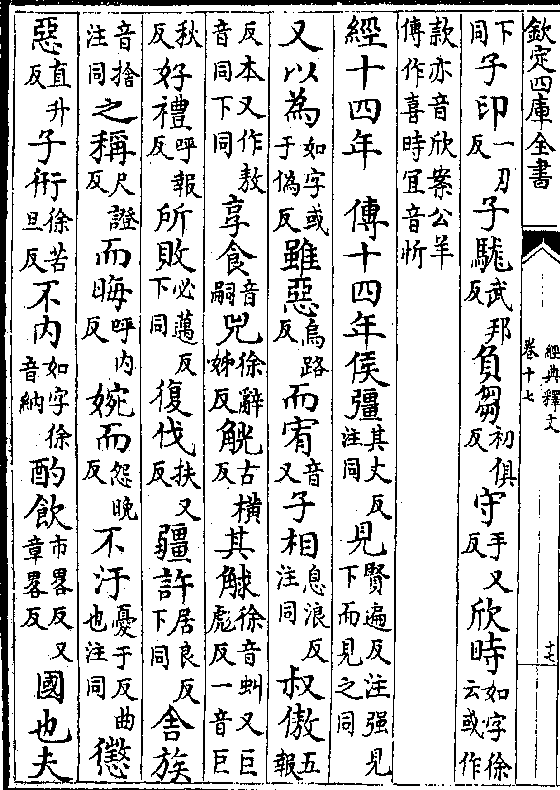 欽定四庫全書
經典釋文
卷十七
十七
下同子印一刃反子駹武邦反負芻初俱反守手又反欣時如字徐云或作
款亦音欣案公羊傳作喜時宜音忻
經十四年　傳十四年侯彊其丈反注同見賢遍反注强見下而見之同
又以為如字或于偽反雖惡烏路反而宥音又子相息浪反注同叔傲五報
反本又作敖音同下同享食音嗣兕徐辭姊反觥古橫反其觩徐音虯又巨彪反一音巨
秋反好禮呼報反所敗必邁反下同復伐扶又反疆許居良反下同舍族
音捨注同之稱尺證反而晦呼內反婉而怨晚反不汙憂于反曲也注同懲
直升反惡子衎徐苦旦反不内如字徐音納酌飲市畧反又章畧反國也夫